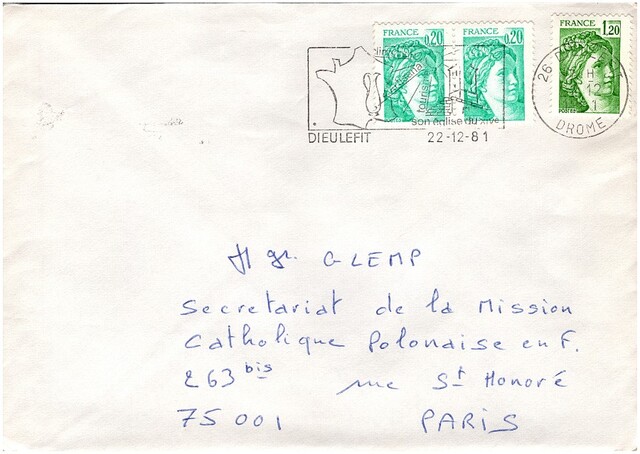 FRANCE 0,20
FRANCE 0,20
FRANCE 1,20
tourisme
son église du XIVe
DIEULEFIT
22-12-81
26
H
12
1
DROME
Mgr. GLEMP
Secretariat de la Mission
Catholique Polonaise en F.
263 bis rue St Honoré
75001 PARIS